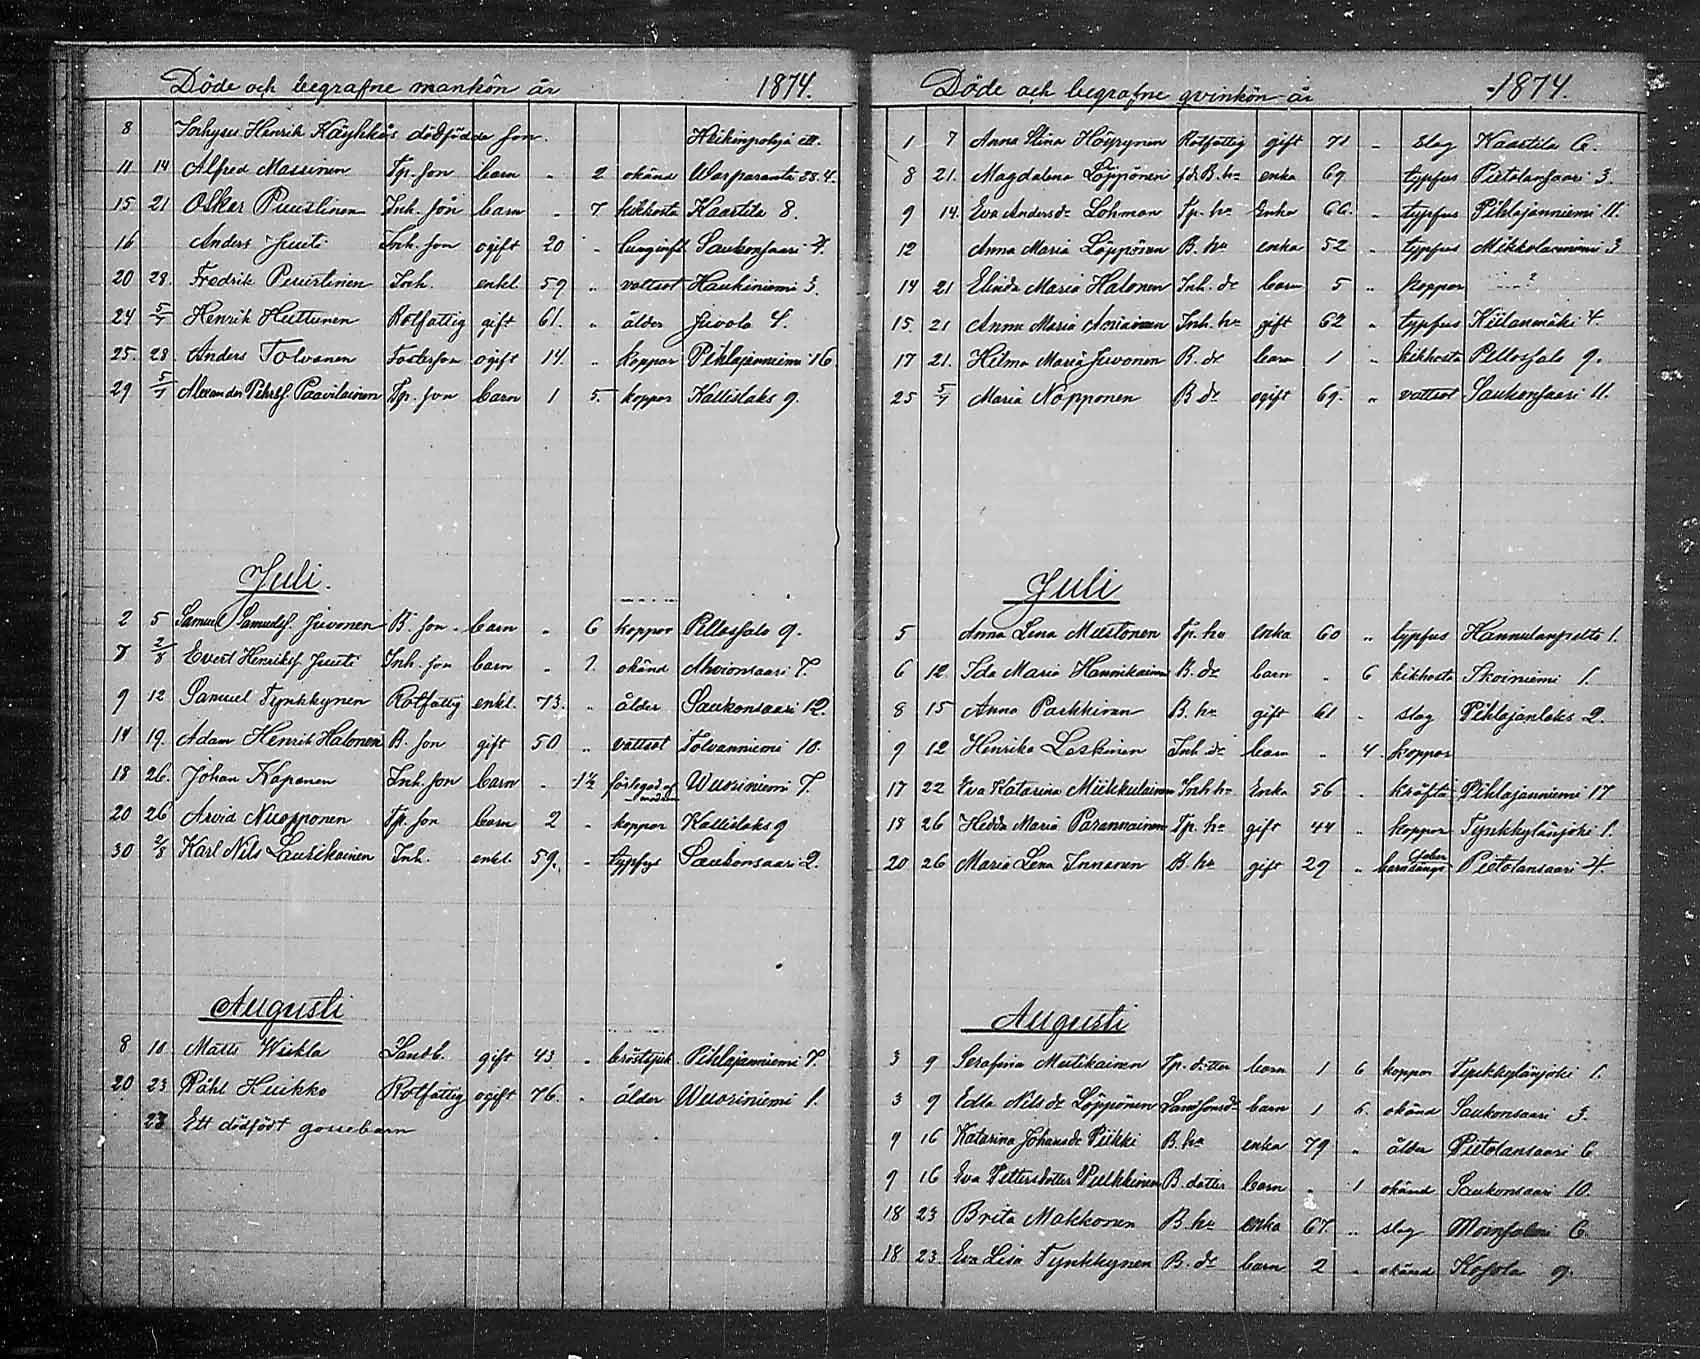 Döde och begrafne mankön år 1874.
8 Inhyses Henrik Käyhkös dödfödde son. Heikinpohja ett.
11 14 Alfred Massinen Tp. son barn " 2 okänd Warparanta 28.4.
15 21 Oskar Puustinen Inh. son barn " 7 kikhosta Kaartila 8.
16 Anders Juuti Inh. son ogift 20 " lunginfl. Saukonsaari 7.
20 28. Fredrik Puustinen Inh. enkl. 59 " vattsot Haukiniemi 3.
24 5/7 Henrik Huttunen Rotfattig gift 61. " ålder Juvola 4.
25. 28. Anders Tolvanen Fosterson ogift 14. " koppor Pihlajanniemi 16.
29 5/7 Alexander Pehrsf. Paavilainen Tp. son barn 1 5. koppor Kallislaks 9.
Juli.
2 5 Samuel Samuelsf. Juvonen B. son barn " 6 koppor Pellossalo 9.
7 2/8 Evert Henriksf. Juuti Inh. son barn " 1. okänd Ahvionsaari 7.
9 12 Samuel Tynkkynen Rotfattig enkl. 73. " ålder Saukonsaari 12.
14 19. Adam Henrik Halonen B. son gift 50 " vattsot Tolvanniemi 10.
18 26. Johan Kaponen Inh. son barn " 1½ förlegad af modren Wuoriniemi 7.
20 26 Arvid Nuopponen Tp. son barn 2 " koppor Kallislaks 9
30 2/8 Karl Nils Laukkainen Inh. enkl. 59. " typfus Saukonsaari 2.
Augusti
8 10 Matts Wiskla Landb. gift 43 " bröstsjuk Pihlajanniemi 7.
20 23 Påhl Huikko Rotfattig ogift 76. " ålder Wuoriniemi 1.
23 Ett dödfödt gossebarn
Döde och begrafne qvinkön år 1874.
1 7 Anna Stina Höyrynen Rotfattig gift 71 " slag Kaartila 6.
8 21. Magdalena Löppönen fd. B. ha enka 69. " typfus Pietolansaari 3.
9 14. Eva Andersdr Lohman Tp. ha Enka 66. " typfus Pihlajanniemi 11.
12 Anna Maria Löppönen B. ha enka 52 " typfus Mikkolanniemi 3
14 21 Elinda Maria Halonen Inh. dr barn 5 " koppor ?
15. 21 Anna Maria Inh. ha gift 62 " typfus Kiilanmäki 4.
17 21. Hilma Maria Juvonen B. dr barn 1 " kikhosta Pellossalo 9.
25 5/7 Maria Nopponen B. dr ogift 69. " vattsot Saukonsaari 11.
Juli
5 Anna Lena Mustonen Tp. ha enka 60 " typfus Hannulanpelto 1.
6 12 Ida Maria Hannikainen B. dr barn " 6 kikhosta Skoiniemi 1.
8 15 Anna Parkkinen B. ha gift 61 " slag Pihlajanlaks 2.
9 12 Henrika Laskinen Inh. dr barn " 4. koppor
17 22 Eva Katarina Miikkulainen Inh. ha Enka 56 " kräfta Pihlajanniemi 17
18 26 Hedda Maria Parannainen Tp. ha gift 44 " koppor Tynkkylänjoki 1.
20 26 Maria Lena Innanen B. ha gift 29 " barnsängsfeber Pietolansaari 4.
Augusti
3 9 Serafina Mutikainen Tp. dotter barn 1 6 koppor Tynkkylänjoki 1.
3 9 Edla Nilsdr Löppönen Landbonsdr barn 1 5. okänd Saukonsaari 3.
9 16 Katarina Johansdr Piikki B. ha enka 79 " ålder Pietolansaari 6.
9 16 Eva Pettersdotter Pulkkinen B. dotter barn " 1 okänd Saukonsaari 10.
18 23 Brita Makkonen B. ha enka 67. " slag Moinsalmi 6.
18 23 Eva Lisa Tynkkynen B. dr barn 2 " okänd Kosola 9.